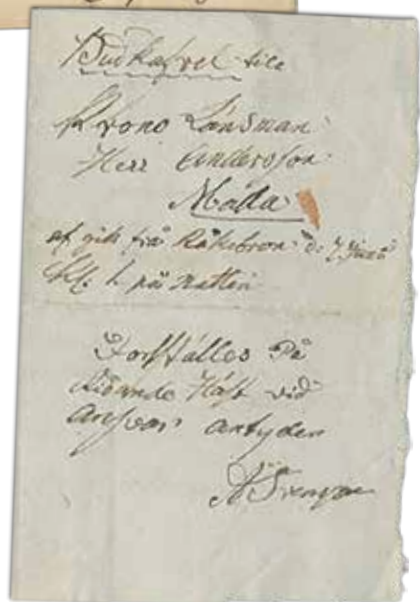 Budkafvel till
Krono Länsman
Herr Andersson
Måla
af gik frå Råkebron d: 7 Juni
Kl. 1 på natten
Fortställes På
Ridande Häst vid
Ansvar antyder
Svensson